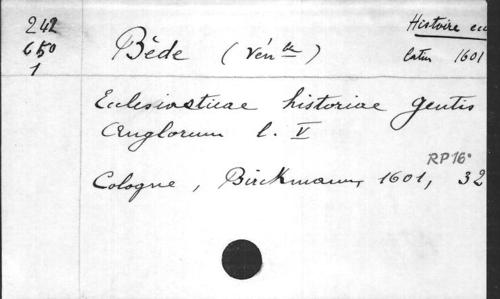 242
650
1
Histoire ecc
latin 1601
Bède (Vénble)
Ecclesiasticae historiae gentis
Anglorum l. V
RP16°
Cologne, Birckmann, 1601, 32